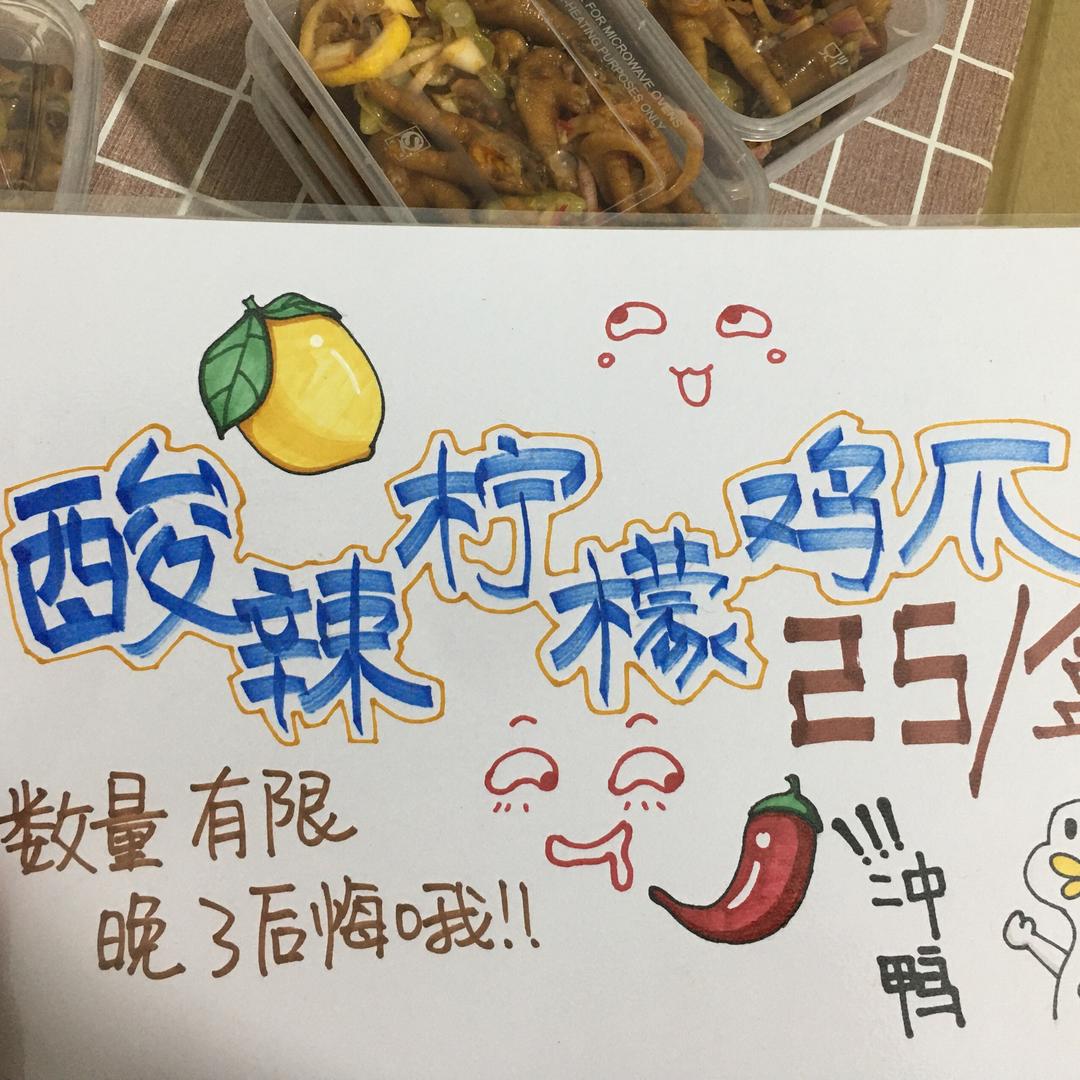 FOR MICROWAVE OVENS
HEATING PURPOSES ONLY
酸辣柠檬鸡爪
25/
数量有限
晚了后悔哦!!
!!!冲
鸭